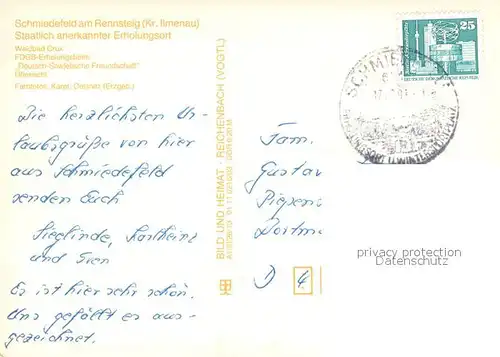 Schmiedefeld am Rennsteig (Kr. Ilmenau)
Staatlich anerkannter Erholungsort
Waldbad Grux
FDGB-Erholungsheim
„Deutsch-Sowjetische Freundschaft"
Übersicht
Fotoatelier, Karel, Dessner (Erzgeb.)
Die herzlichsten Ur-
laubsgrüße von hier
aus Schmiedefeld
senden Euch
Sieglinde, Karlheinz
und Sven
Es ist hier sehr schön.
Uns gefällt es aus-
gezeichnet.
BILD UND HEIMAT · REICHENBACH (VOGTL)
25
SCHMIEDE
Fam.
Gustav
Dortm
D 4
privacy protection
Datenschutz